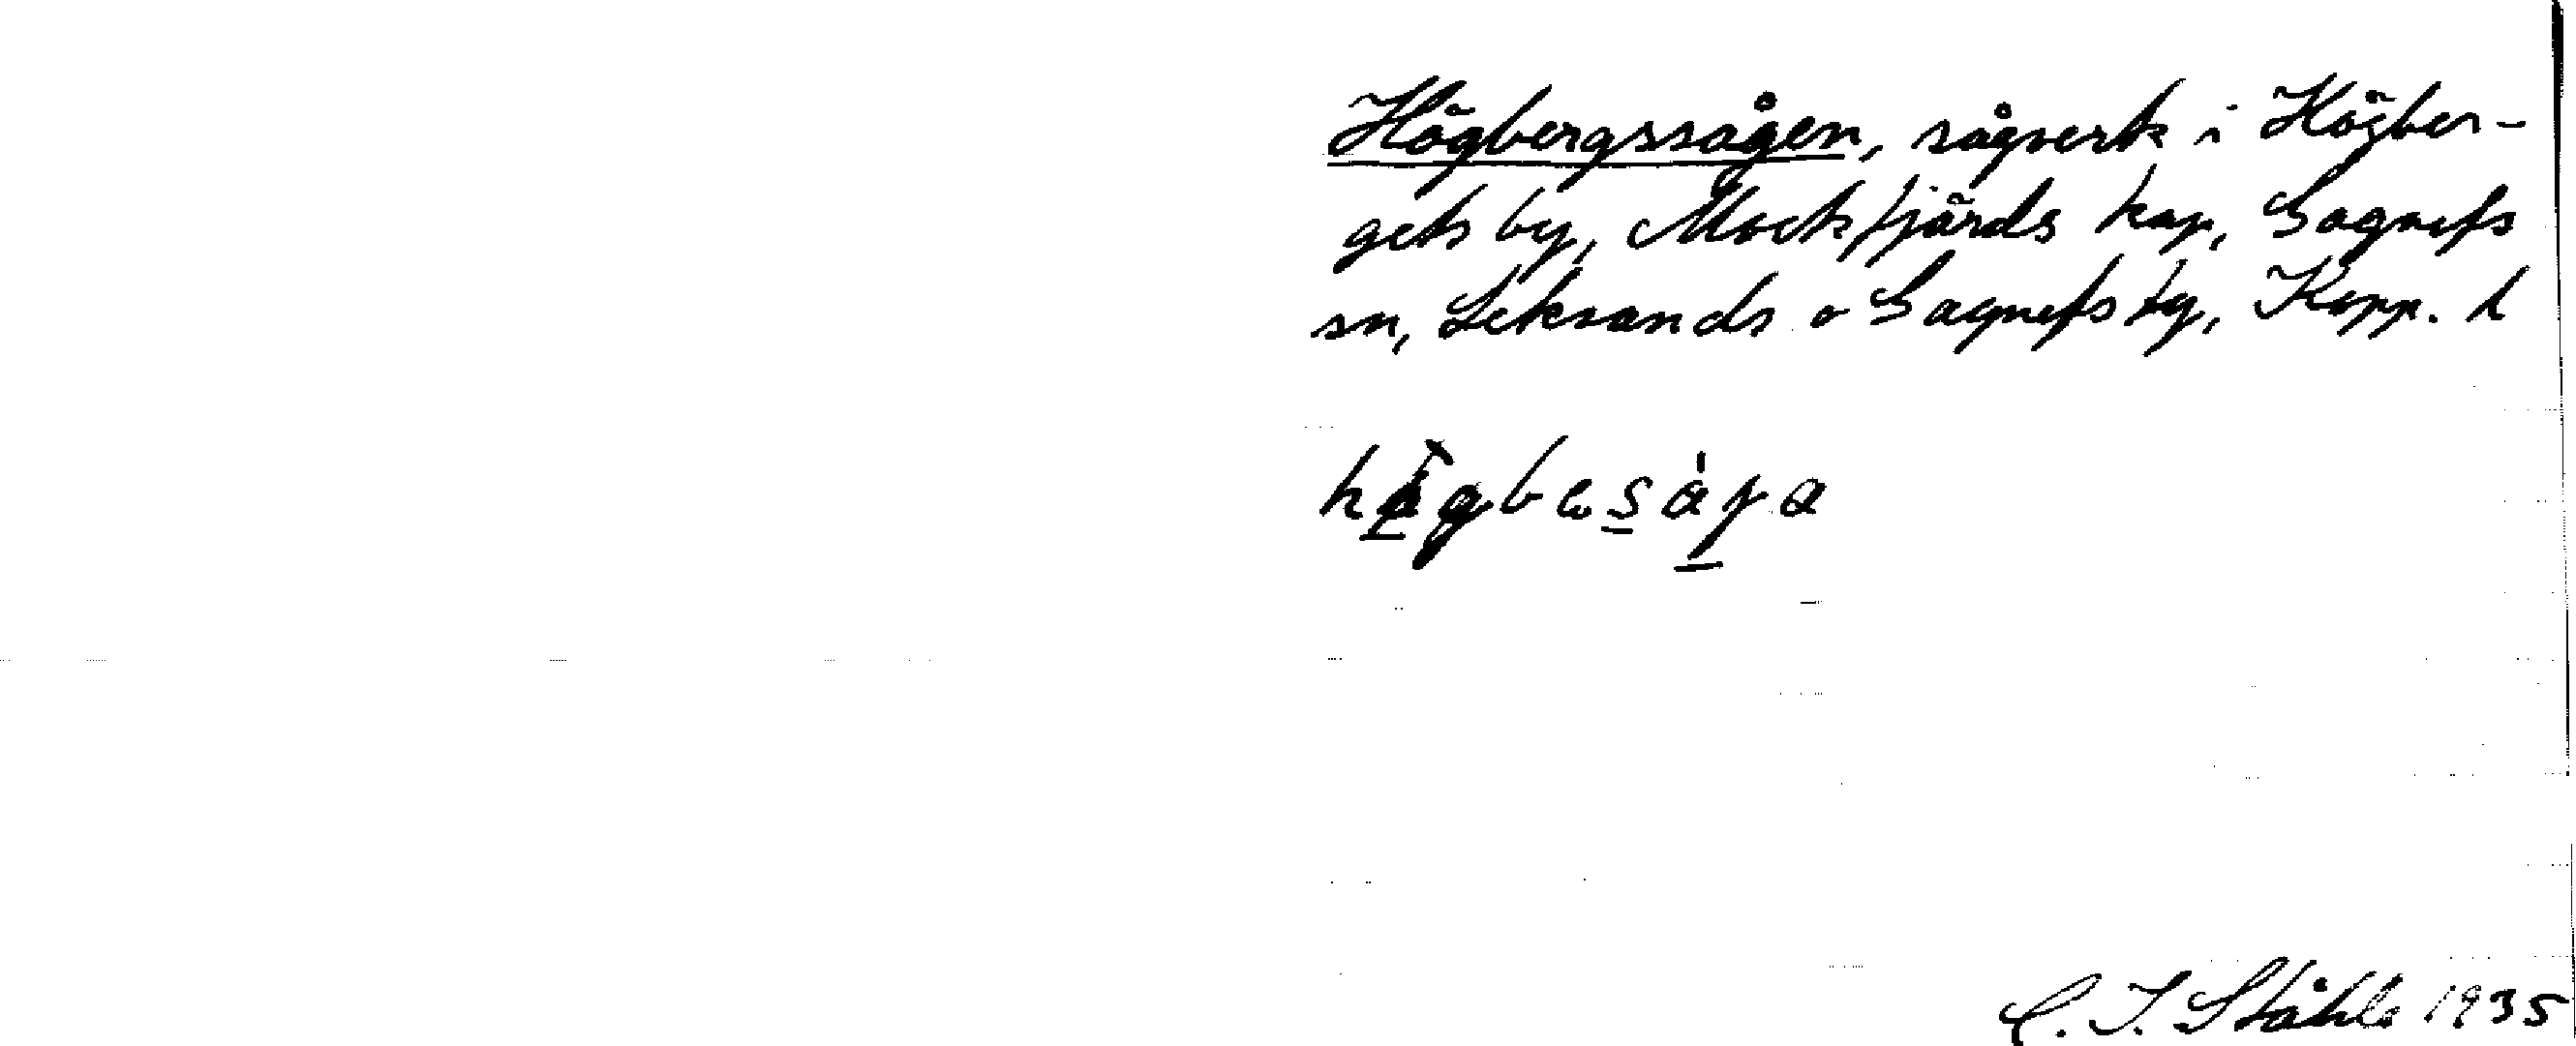 Högbergssågen, sågverk i Högber-
gets by, Mockfjärds kap, Gagnefs
sn, Leksands o Gagnefs tg, Kopp. l
C. I. Ståhle 1935